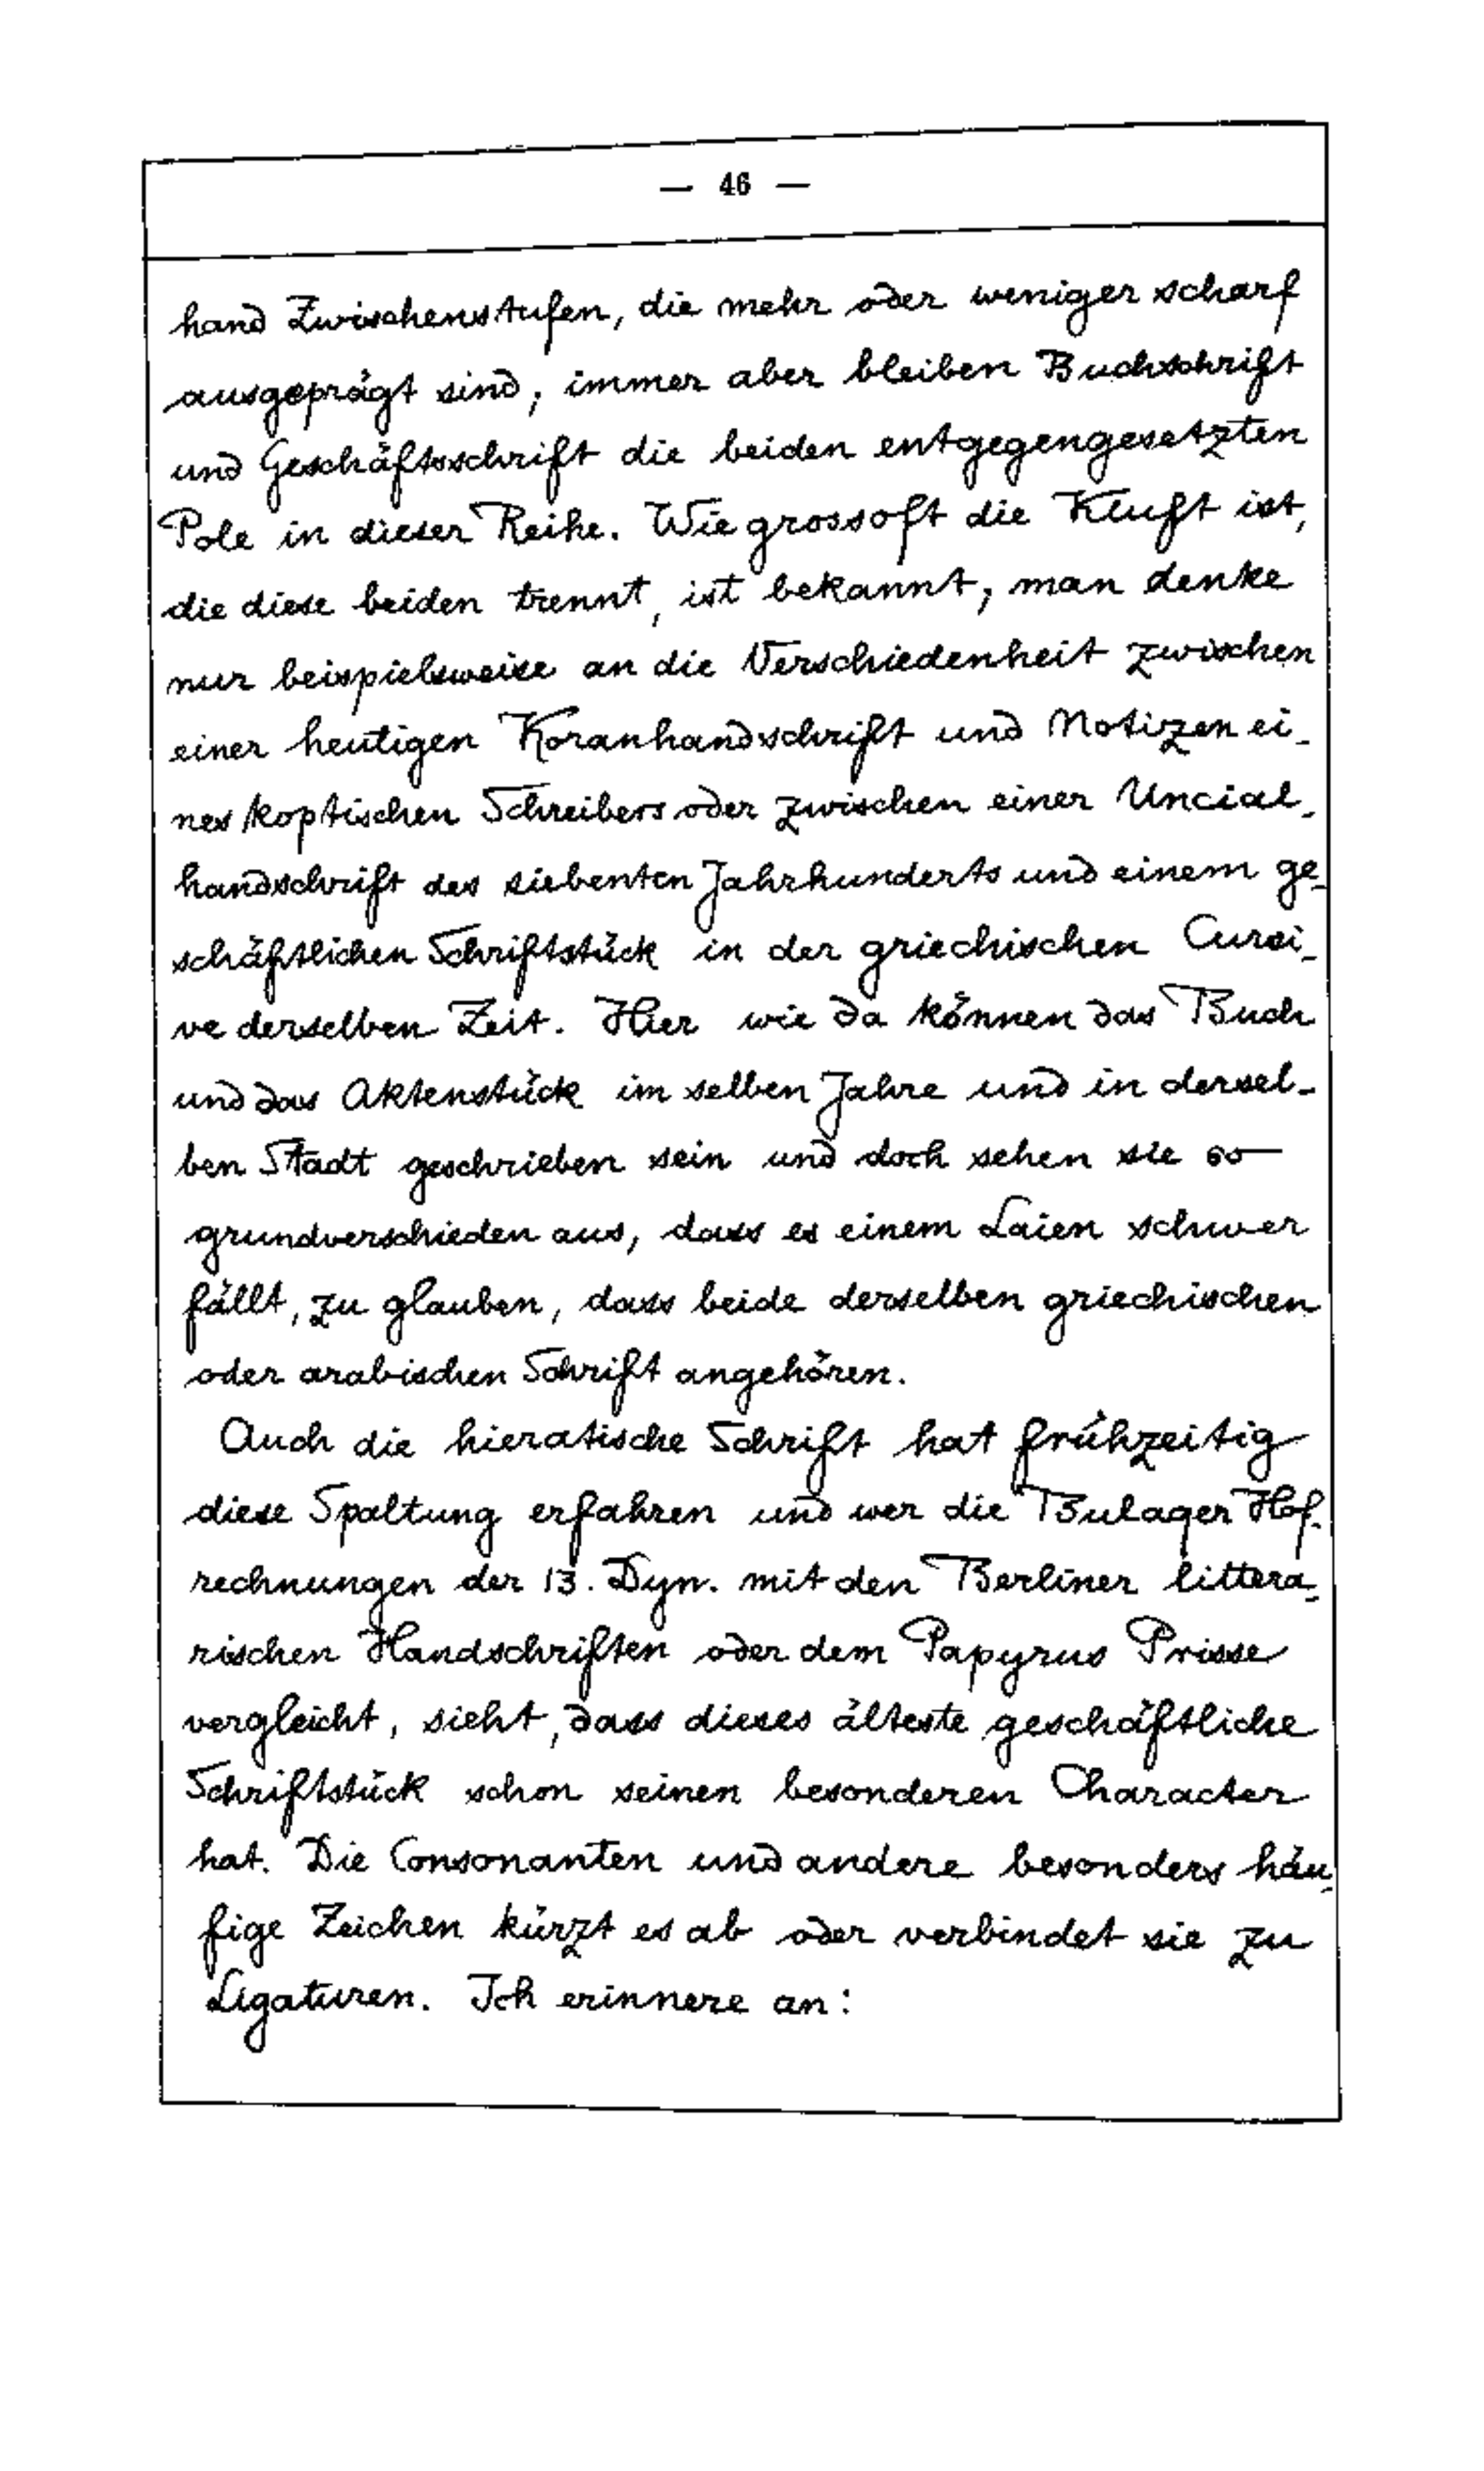 — 46 —
hand Zwischenstufen, die mehr oder weniger scharf
ausgeprägt sind; immer aber bleiben Buchschrift
und Geschäftsschrift die beiden entgegengesetzten
Pole in dieser Reihe. Wie gross oft die Kluft ist,
die diese beiden trennt, ist bekannt; man denke
nur beispielsweise an die Verschiedenheit zwischen
einer heutigen Koranhandschrift und Notizen ei-
nes koptischen Schreibers oder zwischen einer Uncial-
handschrift des siebenten Jahrhunderts und einem ge-
schäftlichen Schriftstück in der griechischen Cursi-
ve derselben Zeit. Hier wie da können das Buch
und das Aktenstück im selben Jahre und in dersel-
ben Stadt geschrieben sein und doch sehen sie so
grundverschieden aus, dass es einem Laien schwer
fällt, zu glauben, dass beide derselben griechischen
oder arabischen Schrift angehören.
Auch die hieratische Schrift hat frühzeitig
diese Spaltung erfahren und wer die Bulaqer Hof-
rechnungen der 13. Dyn. mit den Berliner littera-
rischen Handschriften oder dem Papyrus Prisse
vergleicht, sieht, dass dieses älteste geschäftliche
Schriftstück schon seinen besonderen Character
hat. Die Consonanten und andere besonders häu-
fige Zeichen kürzt es ab oder verbindet sie zu
Ligaturen. Ich erinnere an: